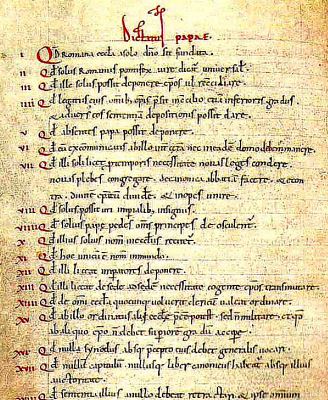 Dictatus papae.
I Qd Romana eccla a solo dno sit fundata.
II Qd solus Romanus pontifex iure dicat universal.
III Qd ille solus possit deponere epos vel reconciliare.
IIII Qd legatus eius omib; epis presit in concilio etia inferioris gradus
& adversus eos sententia depositionis possit dare.
V Qd absentes papa possit deponere.
VI Qd cu excommunicatis ab illo int cetera nec in eade domo debem manere.
VII Qd illi soli licet p temporis necessitate novas leges condere,
novas plebes congregare, de canonica abbatia facere, & econ
tra, divite epatu dividere, & inopes unire.
VIII Qd solus possit uti imperialib; insigniis.
VIIII Qd solius pape pedes oms principes deosculent.
X Qd illius solius nom in ecclesiis recitet.
XI Qd hoc unicu e nom in mundo.
XII Qd illi liceat imperatores deponere.
XIII Qd illi liceat de sede ad sede necessitate cogente epos transmutare.
XIIII Qd de omi eccla quocunq voluerit clericu valeat ordinare.
XV Qd ab illo ordinatus alii eccle preesse potest, sed n militare; & qd
ab aliquo epo n debet superiore gradu accipe.
XVI Qd nulla synodus absq precepto eius debet generalis vocari.
XVII Qd nullu capitulu nullusq liber canonicus habeat absq illius
auctoritate.
sententia illius a nullo debeat retractari & ipse omnium